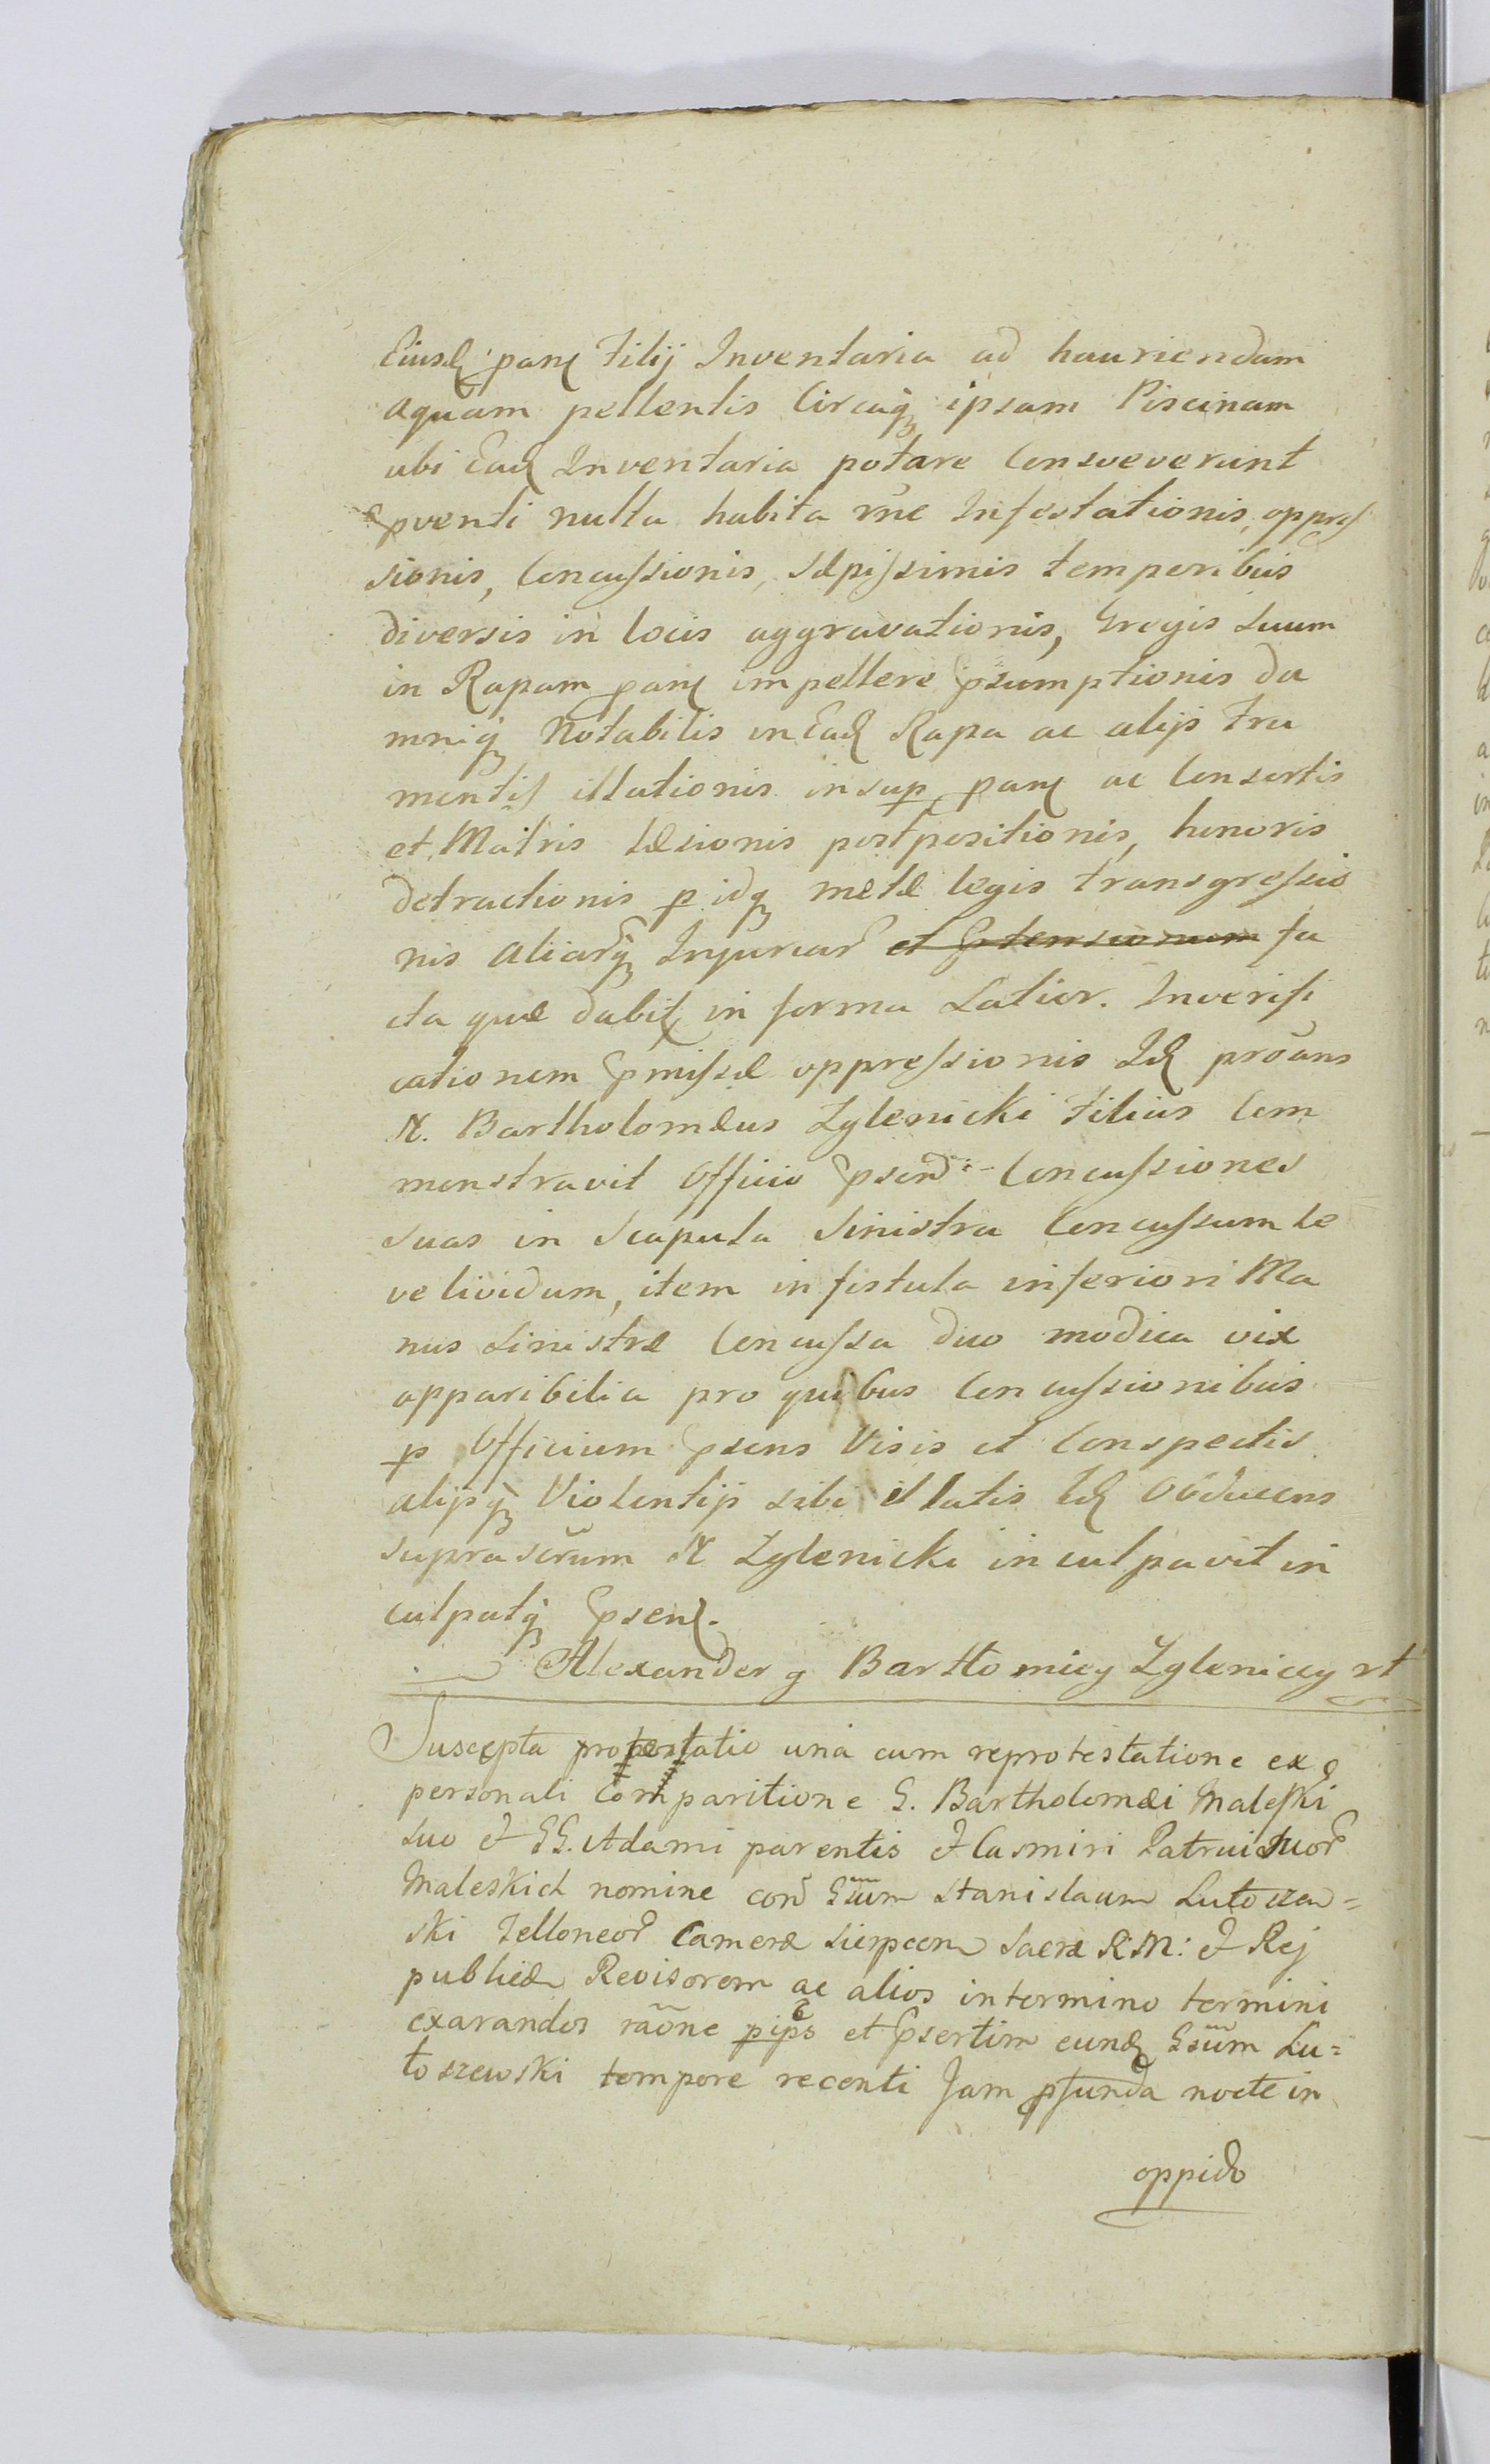 Eiusd pane Filij Inventaria ad hauriendam
aquam pellentis Circaq ipsam Piscinam
ubi Ead Inventaria potare Consveverunt
pventi nulla habita rne Infestationis, oppres
sionis, Concussionis, sæpissimis temporibus
diversis in locis aggravationis, Gregis Suum
in Rapam pane impellere psumptionis da
mniq Notabilis in Ead Rapa ac alijs fru
mentis illationis insup pane ac Consortis
et Matris læsionis postpositionis, honoris
detractionis p idq metæ legis transgressio
nis aliarq Injuriar et ptensionum fa
cta quæ dabit in forma Latior. In verifi
cationem pmissæ oppressionis Id protans
N. Bartholomæus Zglenicki Filius Com
monstravit Officio psend Concussiones
suas in Scapula Sinistra Concussum le
ve lividum, item in fistula inferiori Ma
nus Sinistræ Concussa duo modica vix
apparibilia pro quibus Concussionibus
p Officium psens Visis et Conspectis
alijsq Violentijs sibi illatis Id Obducens
suprascrum N Zglenicki inculpavit in
culpatq psent.
Alexander y Bartlomiey Zgleniccy rt
Suscepta protestatio una cum reprotestatione ex
personali Comparitione G. Bartholomæi Maleski
suo & GG. Adami parentis & Casmiri Patrui suor
Maleskich nomine con Gsum Stanislaum Lutoszew=
ski Telloneor Cameræ Sierpcen Sacræ R: M: & Rej
publicæ Revisorem ac alios in termino termini
exarandos raone pips et psertim eund Gsum Lu=
toszewski tempore recenti Jam pfunda nocte in
oppido